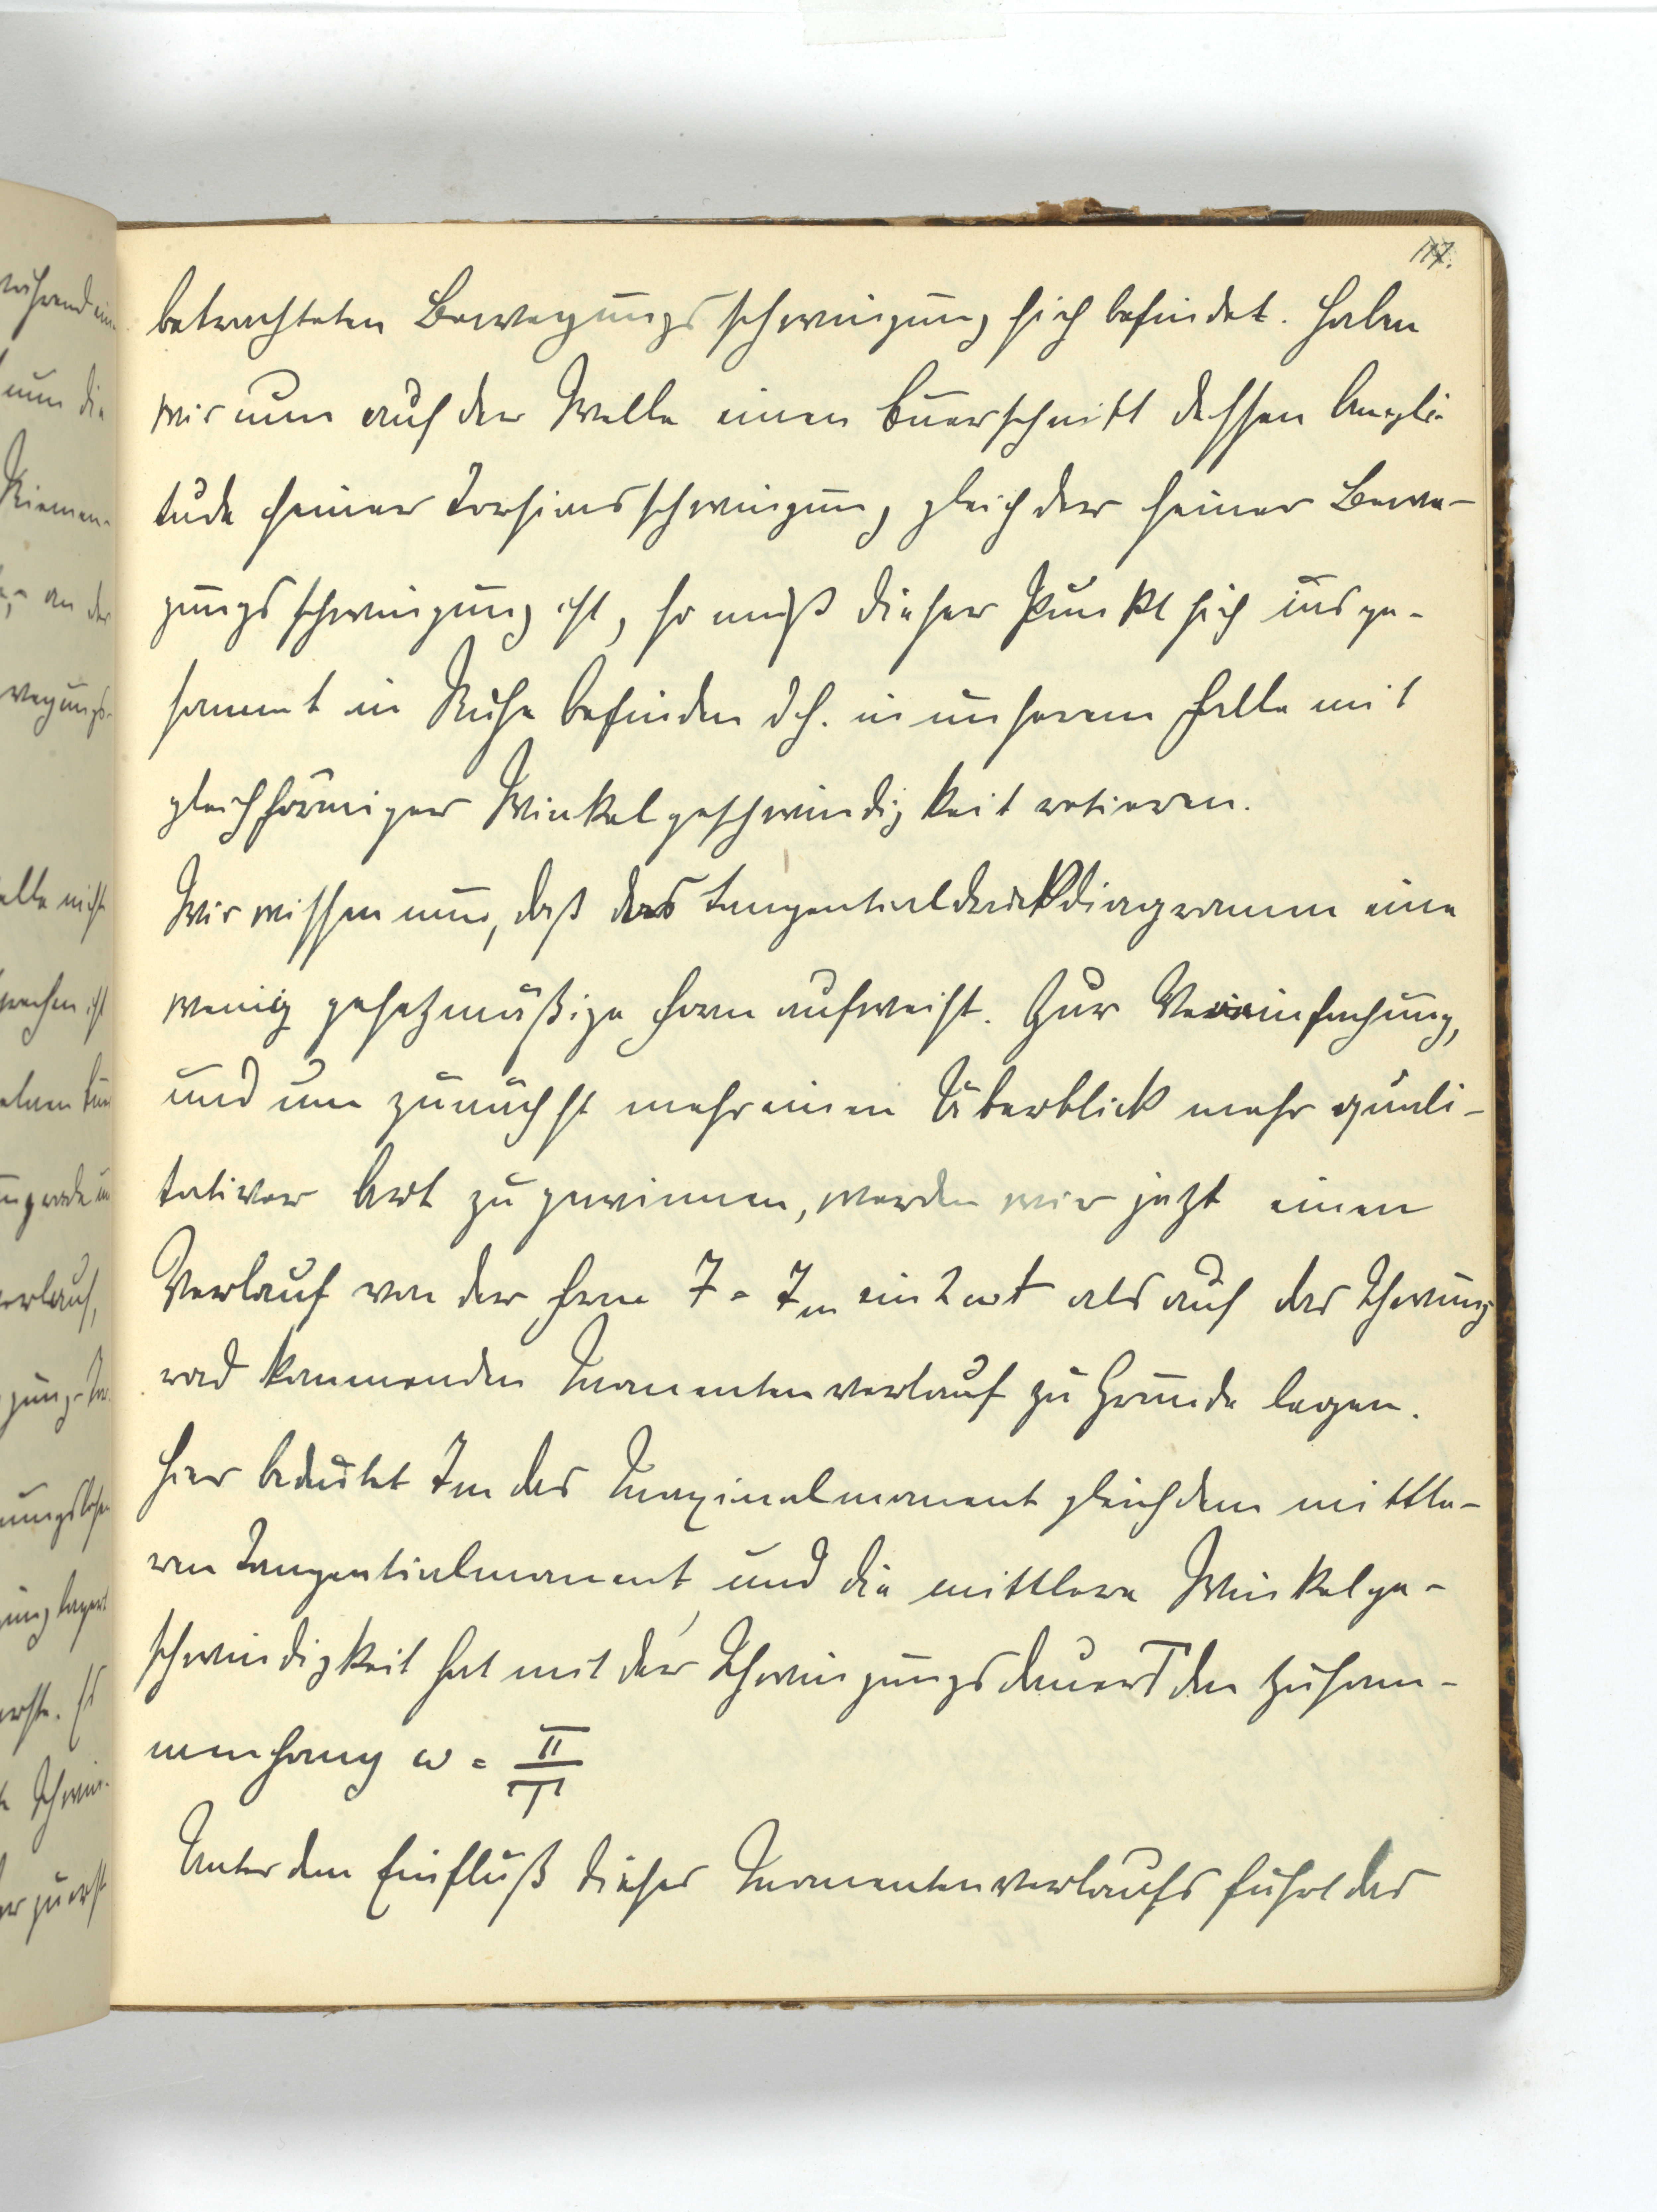 117.
betrachteten Bewegungsschwingung sich befindet. Haben
wir nun auf der Welle einen Querschnitt dessen Ampli-
tude seiner Torsionsschwingung gleich der seiner Bewe-
gungsschwingung ist, so muß dieser Punkt sich insge-
sammt in Ruhe befinden d.h. in unserem Falle mit
gleichförmiger Winkelgeschwindigkeit rotieren.
Wir wissen nun, daß das Tangentialdruckdiagramm eine
wenig gesetzmäßige Form aufweist. Zur Vereinfachung,
und um zunächst mehr einen Überblick mehr quali-
tativer Art zu gewinnen, werden wir jetzt einen
Verlauf von der Form T = Tm sin 2 ωt als auf das Schwung
rad kommenden Momentenverlauf zu Grunde legen.
Hier bedeutet Tm das Maximalmoment gleich dem mittle-
ren Tangentialmoment, und die mittlere Winkelge-
schwindigkeit hat mit der Schwingungsdauer T den Zusam-
menhang ω = π/T
Unter dem Einfluß dieses Momentenverlaufs führt das
während ein
nun die
Riemen-
an der
wegungs-
elle nicht
ist
verlauf,
gung
ungs
ung lagert
erste. Es
Schwin-
er zuerst